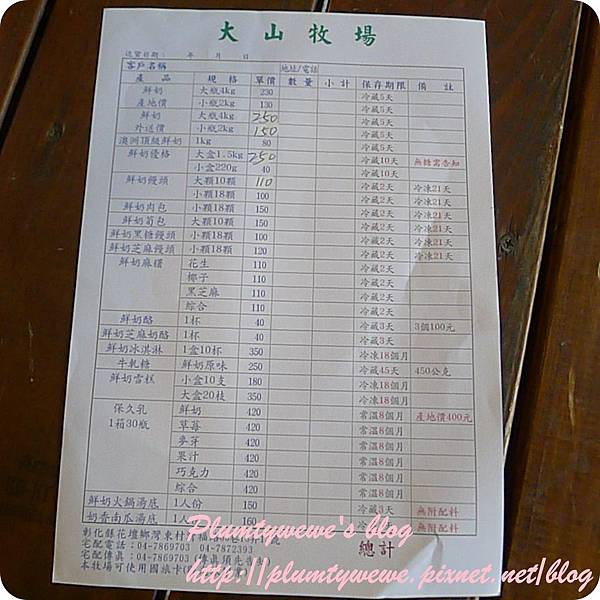 大山牧場
送貨日期： 年 月 日
客戶名稱 地址/電話
產品 規格 單價 數量 小計 保存期限 備註
鮮奶 大瓶4kg 230 冷藏5天
產地價 小瓶2kg 130 冷藏5天
鮮奶 大瓶4kg 250 冷藏5天
外送價 小瓶2kg 150 冷藏5天
澳洲頂級鮮奶 1kg 80 冷藏5天
鮮奶優格 大盒1.5kg 250 冷藏10天 無糖需告知
小盒220g 40 冷藏10天
鮮奶饅頭 大顆10顆 110 冷藏2天 冷凍21天
小顆18顆 100 冷藏2天 冷凍21天
鮮奶肉包 小顆18顆 150 冷藏2天 冷凍21天
鮮奶筍包 大顆10顆 150 冷藏2天 冷凍21天
鮮奶黑糖饅頭 小顆18顆 100 冷藏2天 冷凍21天
鮮奶芝麻饅頭 小顆18顆 120 冷藏2天 冷凍21天
鮮奶麻糬 花生 110 冷藏2天
椰子 110 冷藏2天
黑芝麻 110 冷藏2天
綜合 110 冷藏2天
鮮奶酪 1杯 40 冷藏3天 3個100元
鮮奶芝麻奶酪 1杯 40 冷藏3天
鮮奶冰淇淋 1盒10杯 350 冷凍18個月
牛軋糖 鮮奶原味 250 冷藏45天 450公克
鮮奶雪糕 小盒10支 180 冷凍18個月
大盒20枝 350 冷凍18個月
保久乳 鮮奶 420 常溫8個月 產地價400元
1箱30瓶 草莓 420 常溫8個月
麥芽 420 常溫8個月
果汁 420 常溫8個月
巧克力 420 常溫8個月
綜合 420 常溫8個月
鮮奶火鍋湯底 1人份 150 冷藏3天 無附配料
奶香南瓜湯底 1人份 160 冷藏3天 無附配料
彰化縣花壇鄉灣東村 總計
宅配電話：04-7869703 04-7872393
宅配傳真：04-7869703
本牧場可使用國旅卡
Plumtywewe's blog
http://plumtywewe.pixnet.net/blog